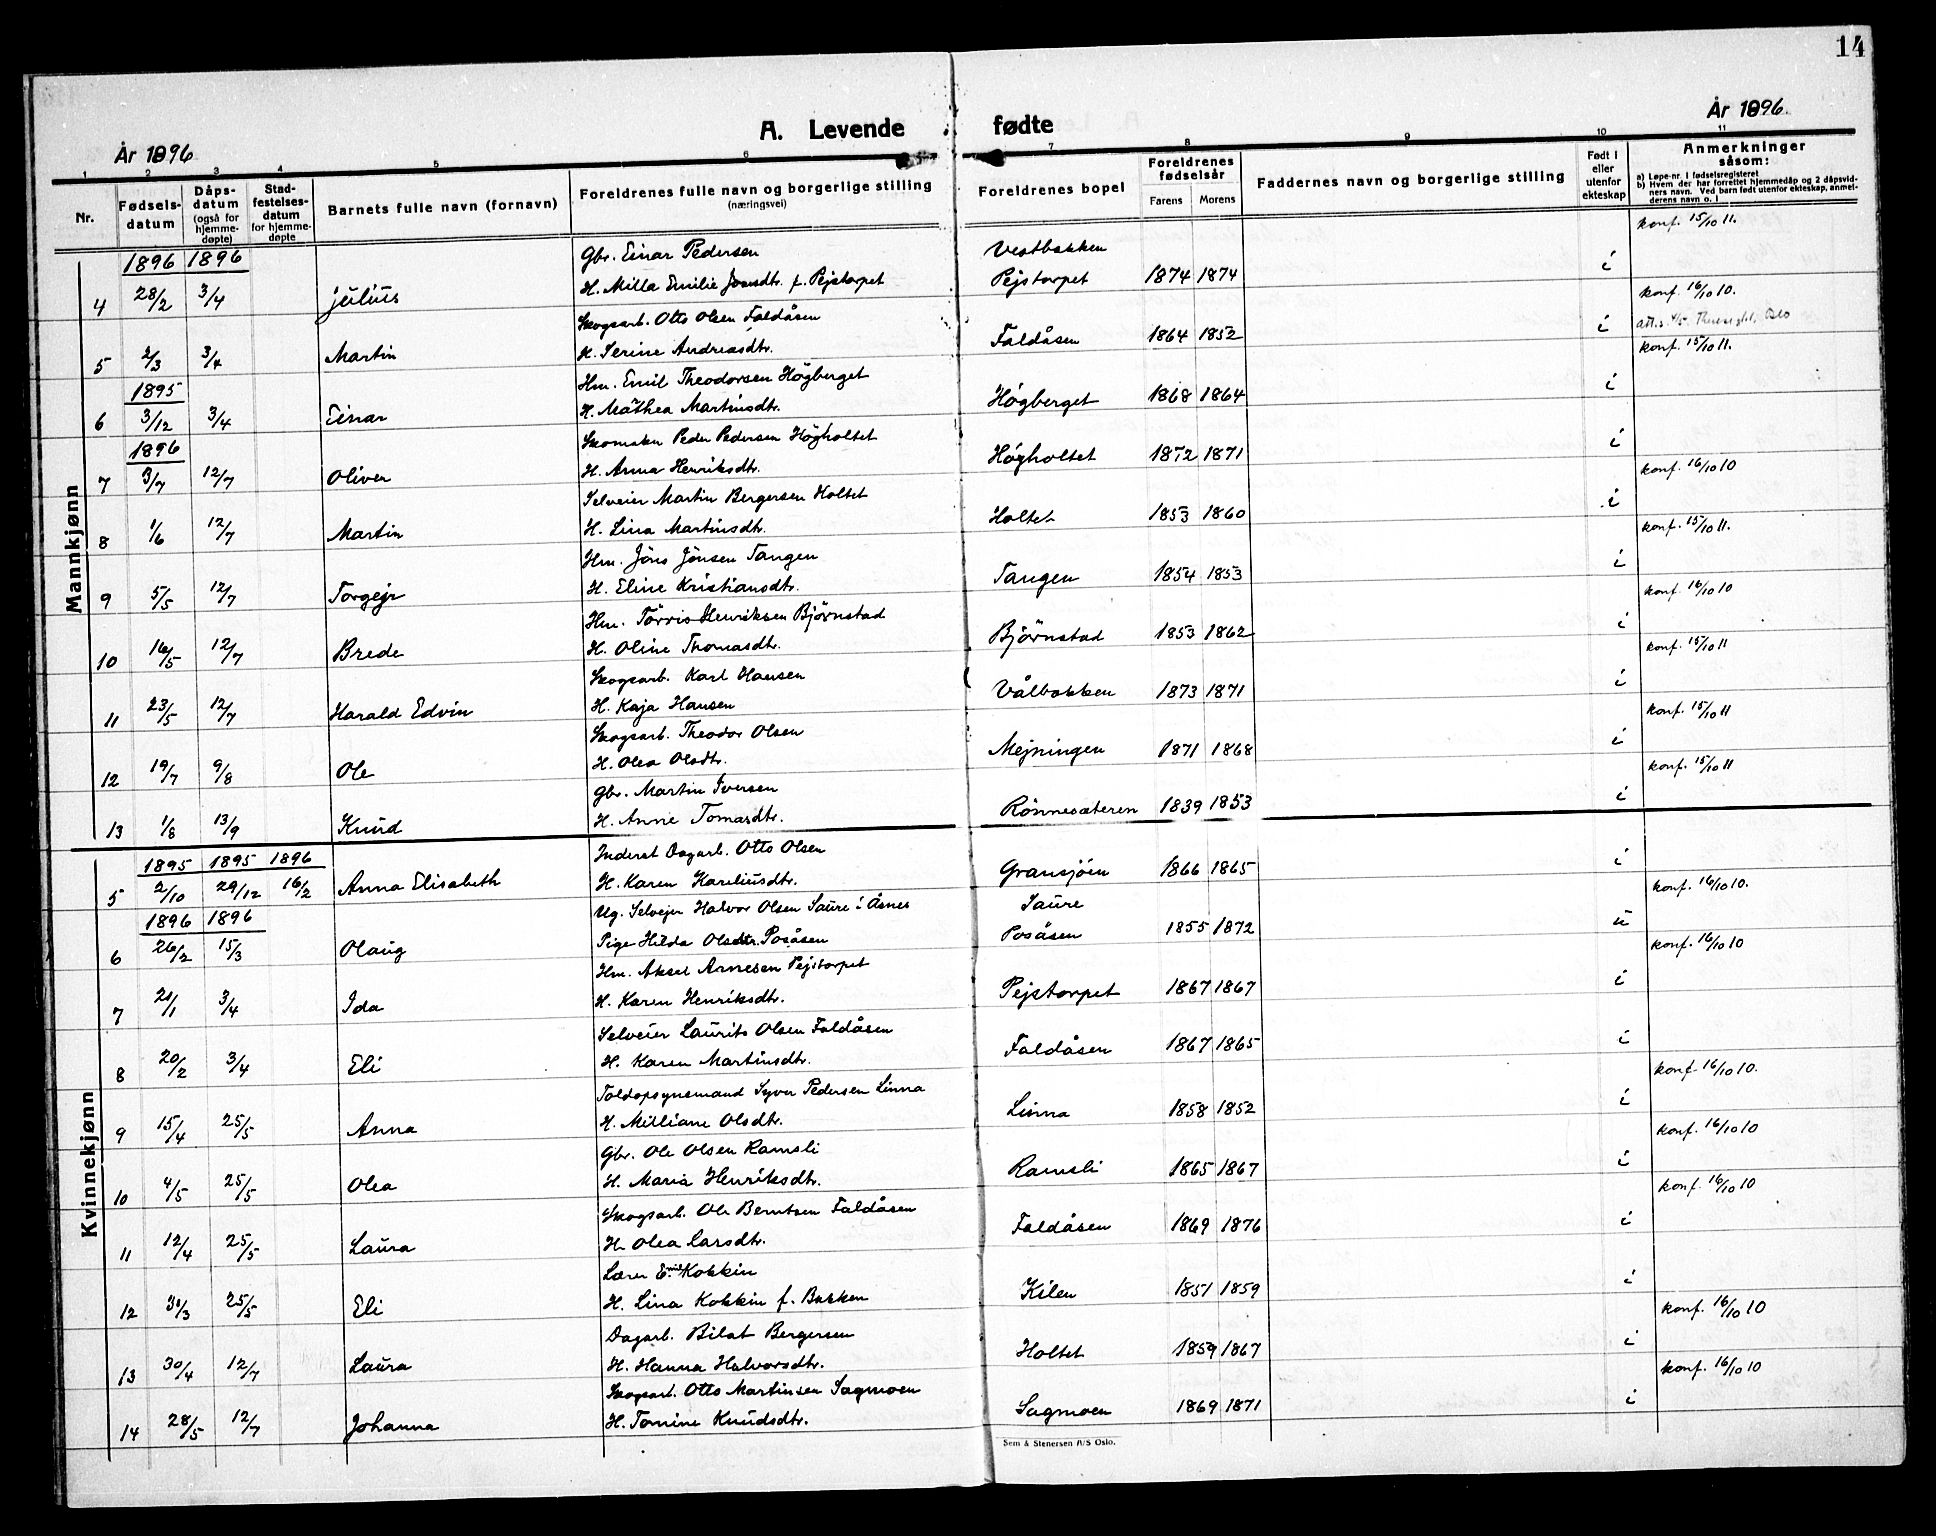 14
År 1896
A. Levende
fødte
År 1896.
1 2 3 4 5 6 7 8 9 10 11
Nr. Fødselsdatum Dåpsdatum (også for hjemmedøpte) Stadfestelsesdatum for hjemmedøpte Barnets fulle navn (fornavn) Foreldrenes fulle navn og borgerlige stilling (næringsvei) Foreldrenes bopel Foreldrenes fødselsår Farens Morens Faddernes navn og borgerlige stilling Født i eller utenfor ekteskap Anmerkninger såsom:
a) Løpe-nr. i fødselsregisteret
b) Hvem der har forrettet hjemmedåp og 2 dåpsvidners navn. Ved barn født utenfor ekteskap, anmelderens navn o. l
Mannkjønn
1896 1896 Gbr. Einar Pedersen Vestbakken konf. 15/10 11.
4 28/2 3/4 Julius H. Milla Emilie Jonsdtr. f. Pejstorpet Pejstorpet 1874 1874 i
Skogsarb. Otto Olsen Faldåsen konf. 16/10 10.
5 2/3 3/4 Martin H. Serine Andreasdtr. Faldåsen 1864 1852 i att.s. 4/5 Oslo
1895 Hm. Emil Theodorsen Högberget konf. 15/10 11.
6 3/12 3/4 Einar H. Mathea Martinsdtr. Högberget 1868 1864 i
1896 Skomaker Peder Pedersen Högholtet
7 3/7 12/7 Oliver H. Anna Henriksdtr. Högholtet 1872 1871 i
Selveier Martin Bergersen Holtet konf. 16/10 10
8 1/6 12/7 Martin H. Lina Martinsdtr. Holtet 1853 1860 i
Hm. Jöns Jönsen Tangen konf. 15/10 11.
9 5/5 12/7 Torgejr H. Eline Kristiansdtr. Tangen 1854 1853 i
Hm. Törris Henriksen Björnstad konf. 16/10 10
10 16/5 12/7 Brede H. Oline Thomasdtr. Björnstad 1853 1862 i
Skogsarb. Karl Hansen konf. 15/10 11
11 23/5 12/7 Harald Edvin H. Kaja Hansen Vålbakken 1873 1871 i
Skogsarb. Theodor Olsen konf. 15/10 11
12 19/7 9/8 Ole H. Olea Olsdtr. Mejningen 1871 1868 i
Gbr. Martin Iversen konf. 15/10 11
13 1/8 13/9 Knud H. Anne Tomasdtr. Rönnesæteren 1839 1853 i
Kvinnekjønn
1895 1895 1896 Inderst Dagarb. Otto Olsen
5 2/10 29/12 16/2 Anna Elisabeth H. Karen Kareliusdtr. Gransjöen 1866 1865 i
1896 1896 Ug. Selvejer Halvor Olsen Saure i Åsnes Saure konf. 16/10 10.
6 26/2 15/3 Olaug Pige Hilda Olsdtr. Posåsen Posåsen 1855 1872 u
Hm. Aksel Arnesen Pejstorpet konf. 16/10 10
7 20/1 3/4 Ida H. Karen Henriksdtr. Pejstorpet 1867 1867 i
Selveier Laurits Olsen Faldåsen
8 20/2 3/4 Eli H. Karen Martinsdtr. Faldåsen 1867 1865 i
Toldopsynsmand Syver Pedersen Linna konf. 16/10 10.
9 15/4 25/5 Anna H. Milliane Olsdtr. Linna 1858 1852 i
Gbr. Ole Olsen Ramsli konf. 16/10 10
10 4/5 25/5 Olea H. Maria Henriksdtr. Ramsli 1865 1867 i
Skogsarb. Ole Berntsen Faldåsen konf. 16/10 10
11 12/4 25/5 Laura H. Olea Larsdtr. Faldåsen 1869 1876 i
Lærer Emil Kokkin
12 31/3 25/5 Eli H. Lina Kokkin f. Bakken Kilen 1851 1859 i
Dagarb. Bilat Bergersen konf. 16/10 10
13 30/4 12/7 Laura H. Hanna Halvorsdtr. Holtet 1859 1867 i
Skogsarb. Otto Martinsen Sagmoen konf. 16/10 10
14 28/5 12/7 Johanna H. Tomine Knudsdtr. Sagmoen 1869 1871 i
Sem & Stenersen A/S Oslo.